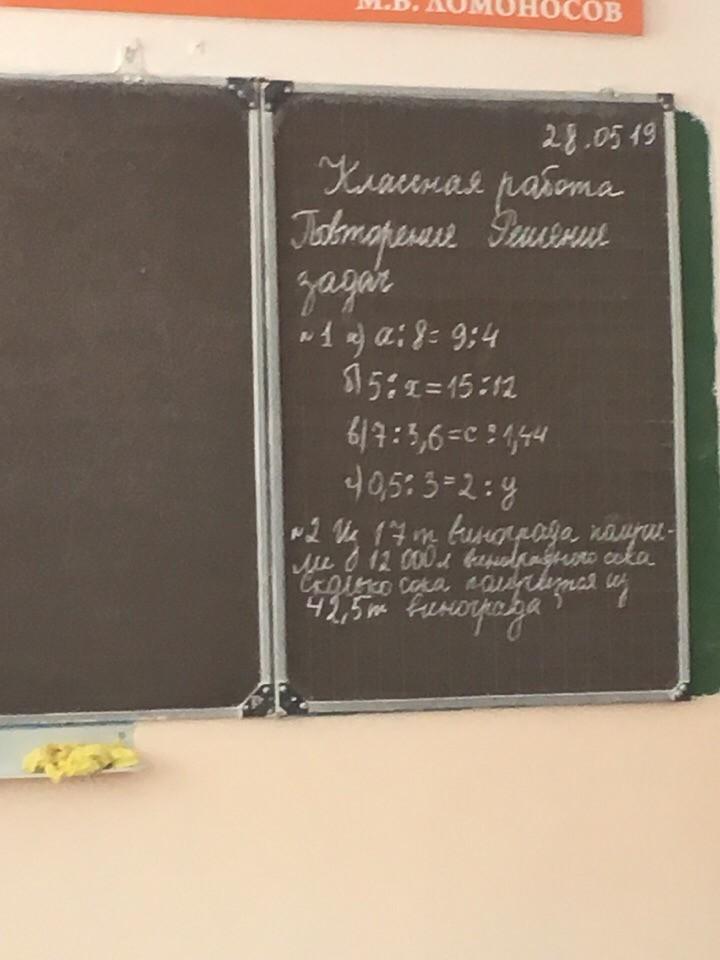 М.В. ЛОМОНОСОВ
28.05 19
Классная работа
Повторение Решение
задач
№1 а) а:8=9:4
б) 5:x=15:12
в) 7:3,6=с:1,44
г) 0,5:3=2:у
№2 Из 17т винограда получи-
ли 12 000л виноградного сока
Сколько сока получится из
42,5т винограда?